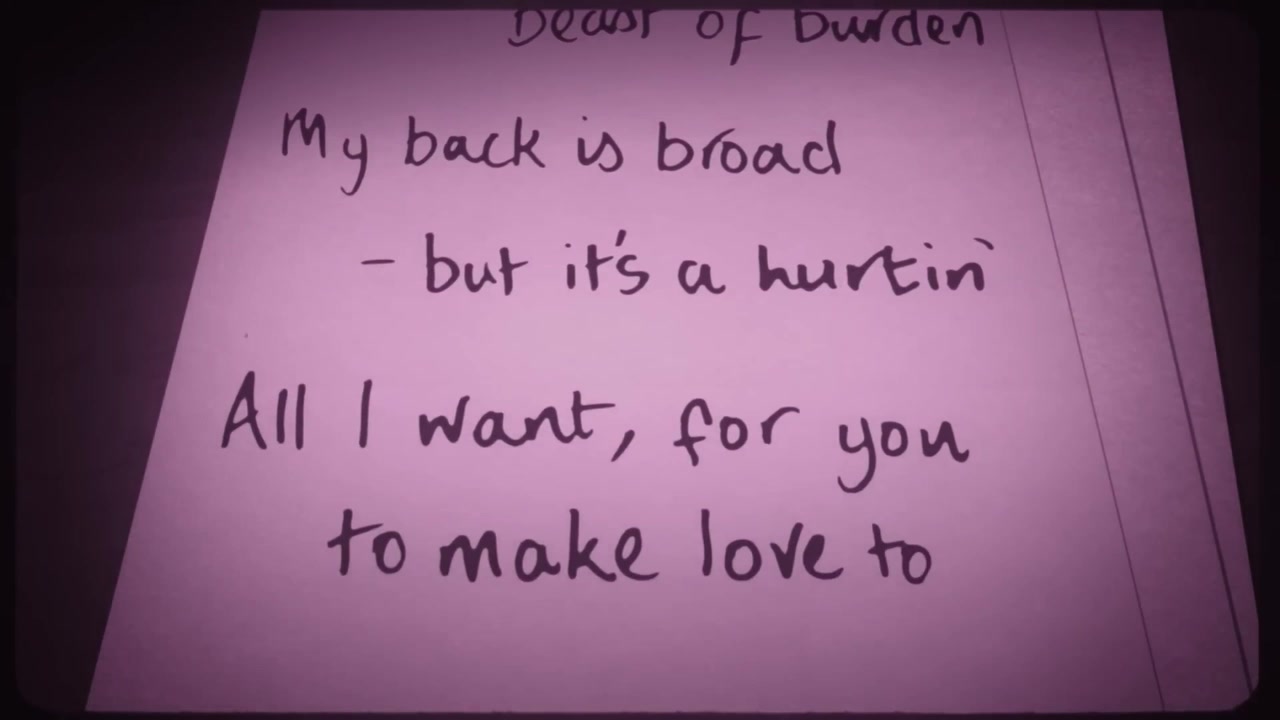 Beast of burden
My back is broad
- but it's a hurtin'
All I want, for you
to make love to